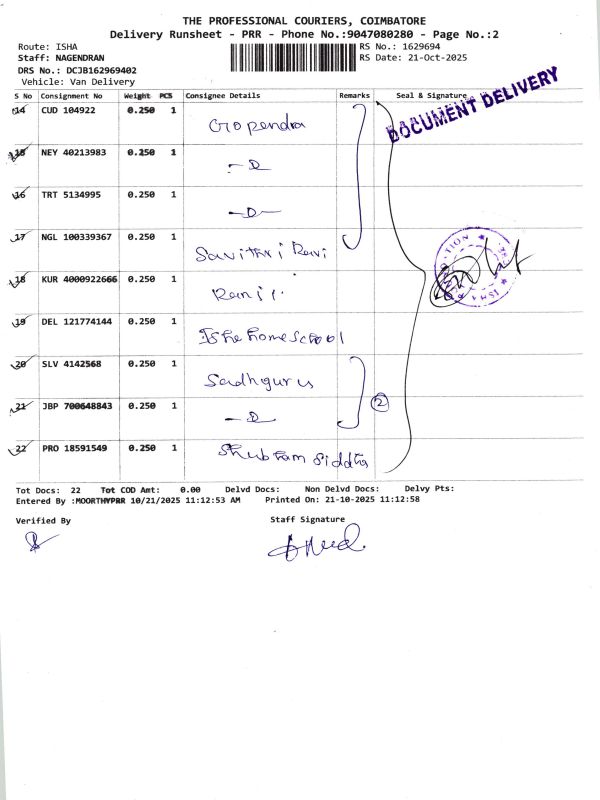 THE PROFESSIONAL COURIERS, COIMBATORE
Delivery Runsheet - PRR - Phone No.:9047080280 - Page No.:2
Route: ISHA
RS No.: 1629694
Staff: NAGENDRAN
RS Date: 21-Oct-2025
DRS No.: DCJB162969402
Vehicle: Van Delivery
S No Consignment No Weight PCS Consignee Details Remarks Seal & Signature
DOCUMENT DELIVERY
14 CUD 104922 0.250 1 Gopendra
15 NEY 40213983 0.250 1 -D-
16 TRT 5134995 0.250 1 -D-
17 NGL 100339367 0.250 1 Savithri Ravi
18 KUR 4000922666 0.250 1
19 DEL 121774144 0.250 1 Isha home School
20 SLV 4142568 0.250 1 Sadhguru
21 JBP 700648843 0.250 1 -D- 2
22 PRO 18591549 0.250 1 Shubham
ISHA
Tot Docs: 22 Tot COD Amt: 0.00 Delvd Docs: Non Delvd Docs: Delvy Pts:
Entered By :MOORTHYPRR 10/21/2025 11:12:53 AM Printed On: 21-10-2025 11:12:58
Verified By
Staff Signature